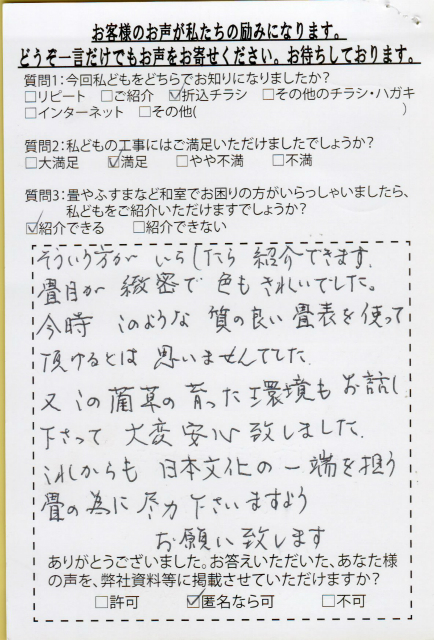 お客様のお声が私たちの励みになります。
どうぞ一言だけでもお声をお寄せください。お待ちしております。
質問1:今回私どもをどちらでお知りになりましたか?
□リピート □ご紹介 ☑折込チラシ □その他のチラシ・ハガキ
□インターネット □その他( )
質問2:私どもの工事にはご満足いただけましたでしょうか?
□大満足 ☑満足 □やや不満 □不満
質問3:畳やふすまなど和室でお困りの方がいらっしゃいましたら、
私どもをご紹介いただけますでしょうか?
☑紹介できる □紹介できない
そういう方が いらしたら 紹介できます.
畳目が 緻密で 色も きれいでした。
今時 このような 質の良い 畳表を使って
頂けるとは 思いませんでした.
又 この 藺草の 育った 環境も お話し
下さって 大変 安心 致しました.
これからも 日本文化の 一端を 担う
畳の為に 尽力 下さいますよう
お願い 致します
ありがとうございました。お答えいただいた、あなた様
の声を、弊社資料等に掲載させていただけますか?
□許可 ☑匿名なら可 □不可